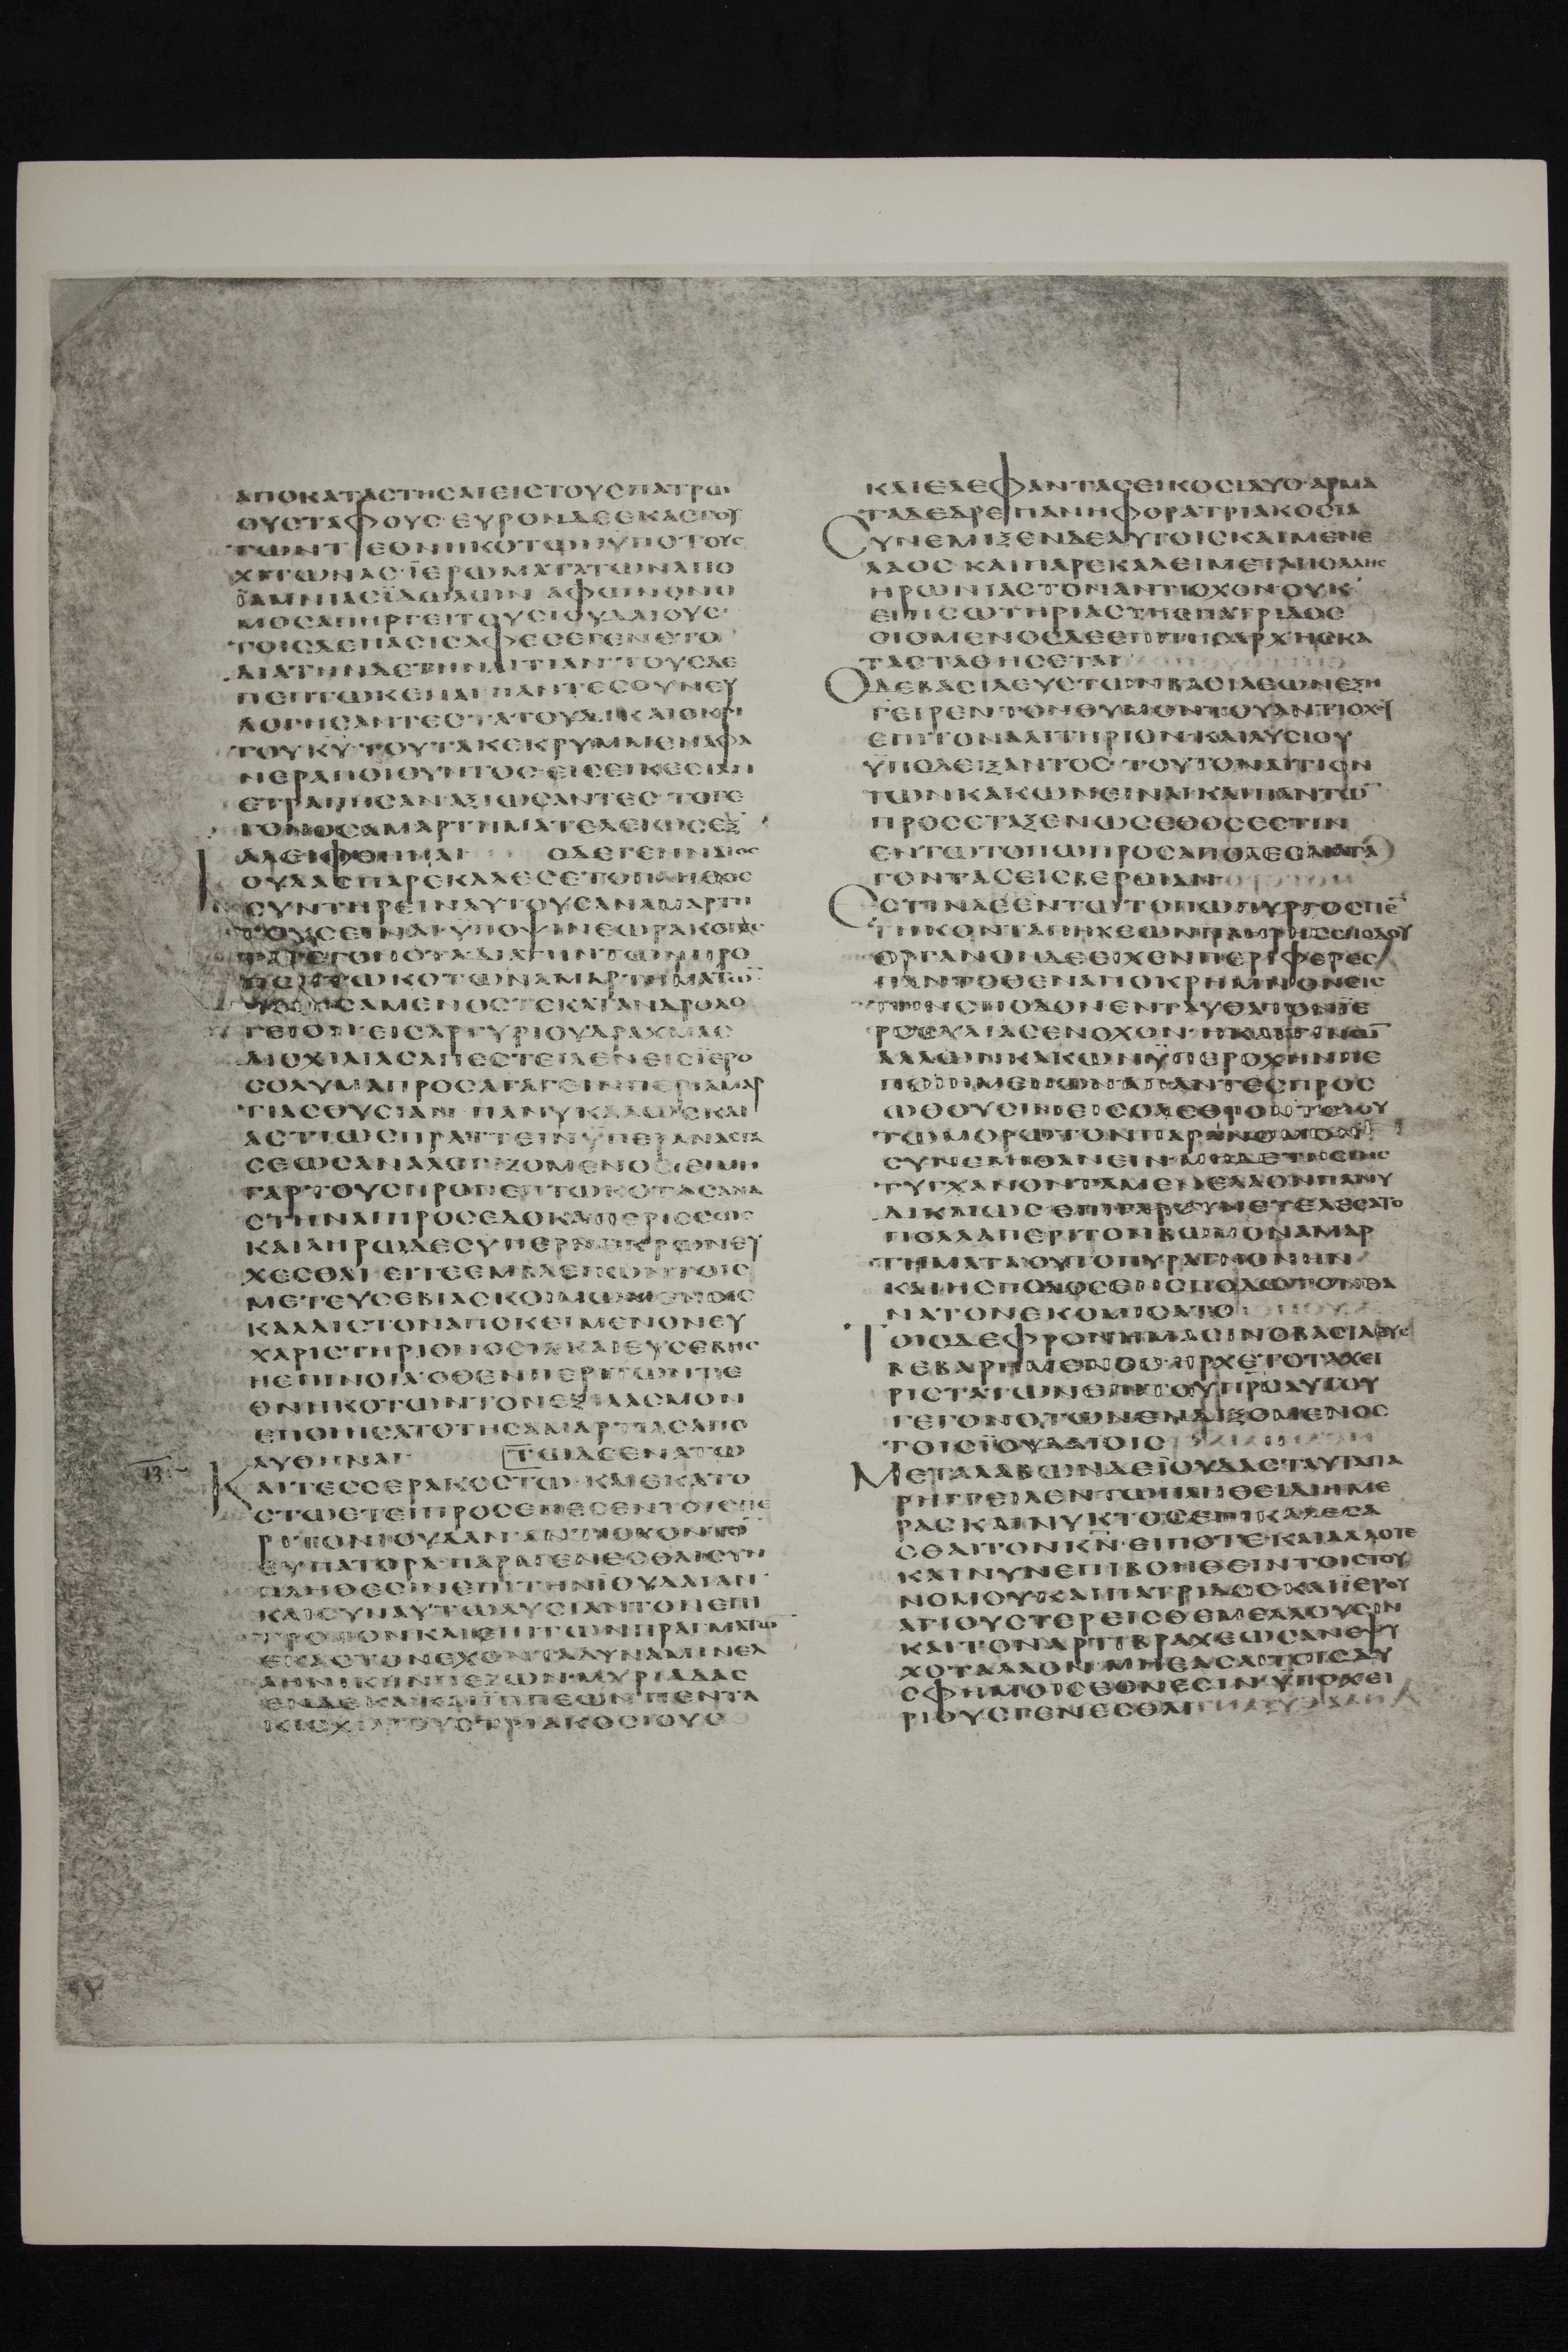 ΑΠΟΚΑΤΑΣΤΗΣΑΙΕΙΣΤΟΥΣΠΑΤΡΩΙ
ΟΥΣΤΑΦΟΥΣ·ΕΥΡΟΝΔΕΕΚΑΣΤΟΥ
ΤΩΝΤΕΘΝΗΚΟΤΩΝΥΠΟΤΟΥΣ
ΧΙΤΩΝΑΣ·ΪΕΡΩΜΑΤΑΤΩΝΑΠΟ
ΪΑΜΝΙΑΣΪΔΩΛΩΝ ΑΦΩΝΟΝΟ
ΜΟΣΑΠΗΡΓΕΙΤΟΥΣΙΟΥΔΑΙΟΥΣ·
ΤΟΙΣΔΕΠΑΣΙΣΑΦΕΣΕΓΕΝΕΤΟ
ΔΙΑΤΗΝΔΕΤΗΝΑΙΤΙΑΝ·ΤΟΥΣΔΕ
ΠΕΠΤΩΚΕΝΑΙ·ΠΑΝΤΕΣΟΥΝΕΥ
ΛΟΓΗΣΑΝΤΕΣΤΑΤΟΥΔΙΚΑΙΟΚΡΙ
ΤΟΥΚΥ·ΤΟΥΤΑΚΕΚΡΥΜΜΕΝΑΦΑ
ΝΕΡΑΠΟΙΟΥΝΤΟΣ·ΕΙΣΕΙΚΕΣΙΑΝ
ΕΤΡΑΠΗΣΑΝ·ΑΞΙΩΣΑΝΤΕΣ·ΤΟΓΕ
ΓΟΝΟΣΑΜΑΡΤΗΜΑΤΕΛΕΙΩΣΕΞ
ΑΛΕΙΦΘΗΝΑΙ ΟΔΕΓΕΝΝΑΙΟΣ
ΙΟΥΔΑΣΠΑΡΕΚΑΛΕΣΕΤΟΠΛΗΘΟΣ
ΣΥΝΤΗΡΕΙΝΑΥΤΟΥΣΑΝΑΜΑΡΤΗ
ΤΟΥΣΕΙΝΑΙ·ΥΠΟΨΙΝΕΩΡΑΚΟΤΑΣ
ΤΑΓΕΓΟΝΟΤΑΔΙΑΤΗΝΤΩΝΠΡΟ
ΠΕΠΤΩΚΟΤΩΝΑΜΑΡΤΗΜΑΤΩ
ΣΑΜΕΝΟΣΤΕΚΑΤΑΝΔΡΟΛΟ
ΓΕΙΟΝ·ΕΙΣΑΡΓΥΡΙΟΥΔΡΑΧΜΑΣ
ΔΙΣΧΙΛΙΑΣΑΠΕΣΤΕΙΛΕΝΕΙΣΪΕΡΟ
ΣΟΛΥΜΑΠΡΟΣΑΓΑΓΕΙΝΠΕΡΙΑΜΑΡ
ΤΙΑΣΘΥΣΙΑΝ·ΠΑΝΥΚΑΛΩΣΚΑΙ
ΑΣΤΙΩΣΠΡΑΤΤΕΙΝΫΠΕΡΑΝΑΣΤΑ
ΣΕΩΣΑΝΑΛΟΓΙΖΟΜΕΝΟΣ·ΕΙΜΗ
ΓΑΡΤΟΥΣΠΡΟΠΕΠΤΩΚΟΤΑΣΑΝΑ
ΣΤΗΝΑΙΠΡΟΣΕΔΟΚΑΠΕΡΙΣΣΟΝ
ΚΑΙΛΗΡΩΔΕΣΥΠΕΡΝΕΚΡΩΝΕΥ
ΧΕΣΘΑΙ·ΕΙΤΕΕΜΒΛΕΠΩΝΤΟΙΣ
ΜΕΤΕΥΣΕΒΙΑΣΚΟΙΜΩΜΕΝΟΙΣ
ΚΑΛΛΙΣΤΟΝΑΠΟΚΕΙΜΕΝΟΝΕΥ
ΧΑΡΙΣΤΗΡΙΟΝΟΣΙΑΚΑΙΕΥΣΕΒΗΣ
ΗΕΠΙΝΟΙΑ·ΟΘΕΝΠΕΡΙΤΩΝΤΕ
ΘΝΗΚΟΤΩΝΤΟΝΕΞΙΛΑΣΜΟΝ
ΕΠΟΙΗΣΑΤΟΤΗΣΑΜΑΡΤΙΑΣΑΠΟ
ΛΥΘΗΝΑΙ ΤΩΙΔΕΕΝΑΤΩ
ΚΑΙΤΕΣΣΕΡΑΚΟΣΤΩ·ΚΑΙΕΚΑΤΟ
ΣΤΩΕΤΕΙΠΡΟΣΕΠΕΣΕΝΤΟΙΣΠΕ
ΡΙΤΟΝΙΟΥΔΑΝ·ΑΝΤΙΟΧΟΝΤΟ
ΕΥΠΑΤΟΡΑ·ΠΑΡΑΓΕΝΕΣΘΑΙΣΥΝ
ΠΛΗΘΕΣΙΝΕΠΙΤΗΝΪΟΥΔΑΙΑΝ·
ΚΑΙΣΥΝΑΥΤΩΛΥΣΙΑΝΤΟΝΕΠΙ
ΤΡΟΠΟΝΚΑΙΕΠΙΤΩΝΠΡΑΓΜΑΤΩ
ΕΚΑΣΤΟΝΕΧΟΝΤΑΔΥΝΑΜΙΝΕΛ
ΛΗΝΙΚΗΝΠΕΖΩΝ·ΜΥΡΙΑΔΑΣ
ΕΝΔΕΚΑ·ΚΑΙΪΠΠΕΩΝΠΕΝΤΑ
ΚΙΣΧΙΛΙΟΥΣΤΡΙΑΚΟΣΙΟΥΣ
ΚΑΙΕΛΕΦΑΝΤΑΣΕΙΚΟΣΙΔΥΟ·ΑΡΜΑ
ΤΑΔΕΔΡΕΠΑΝΗΦΟΡΑΤΡΙΑΚΟΣΙΑ
ΣΥΝΕΜΙΞΕΝΔΕΑΥΤΟΙΣΚΑΙΜΕΝΕ
ΛΑΟΣ·ΚΑΙΠΑΡΕΚΑΛΕΙΜΕΤΑΠΟΛΛΗΣ
ΗΡΩΝΙΑΣΤΟΝΑΝΤΙΟΧΟΝ·ΟΥΚ
ΕΠΙΣΩΤΗΡΙΑΣΤΗΣΠΑΤΡΙΔΟΣ
ΟΙΟΜΕΝΟΣΔΕΕΠΙΤΗΣΑΡΧΗΣΚΑ
ΤΑΣΤΑΘΗΣΕΤΑΙ
ΟΔΕΒΑΣΙΛΕΥΣΤΩΝΒΑΣΙΛΕΩΝΕΞΗ
ΓΕΙΡΕΝΤΟΝΘΥΜΟΝΤΟΥΑΝΤΙΟΧΟΥ
ΕΠΙΤΟΝΑΛΙΤΗΡΙΟΝ·ΚΑΙΛΥΣΙΟΥ
ΫΠΟΔΕΙΞΑΝΤΟΣ·ΤΟΥΤΟΝΑΙΤΙΟΝ
ΤΩΝΚΑΚΩΝΕΙΝΑΙΚΑΙΠΑΝΤΩ
ΠΡΟΣΕΤΑΞΕΝΩΣΕΘΟΣΕΣΤΙΝ
ΕΝΤΩΤΟΠΩΠΡΟΣΑΠΟΛΕΣΑΙΑΓΑ
ΓΟΝΤΑΣΕΙΣΒΕΡΟΙΑΝ
ΕΣΤΙΝΔΕΕΝΤΩΤΟΠΩΠΥΡΓΟΣΠΕ
ΤΗΚΟΝΤΑΠΗΧΕΩΝΠΛΗΡΗΣΣΠΟΔΟΥ
ΟΡΓΑΝΟΝΔΕΕΙΧΕΝΠΕΡΙΦΕΡΕΣ
ΠΑΝΤΟΘΕΝΑΠΟΚΡΗΜΝΟΝΕΙΣ
ΤΗΝΣΠΟΔΟΝΕΝΤΑΥΘΑΤΟΝΪΕ
ΡΟΣΥΛΙΑΣΕΝΟΧΟΝ·ΗΚΑΙΤΙΝΩ
ΑΛΛΩΝΚΑΚΩΝΫΠΕΡΟΧΗΝΠΕ
ΠΟΙΗΜΕΝΟΝΑΠΑΝΤΕΣΠΡΟΣ
ΩΘΟΥΣΙΝΕΙΣΟΛΕΘΡΟΝΤΟΙΟΥ
ΤΩΜΟΡΩΤΟΝΠΑΡΑΝΟΜΟΝ
ΣΥΝΕΒΗΘΑΝΕΙΝ·ΜΗΔΕΤΗΣΓΗΣ
ΤΥΓΧΑΝΟΝΤΑΜΕΝΕΛΑΟΝΠΑΝΥ
ΔΙΚΑΙΩΣ·ΕΠΙΓΑΡΣΥΝΕΤΕΛΕΣΑΤΟ
ΠΟΛΛΑΠΕΡΙΤΟΝΒΩΜΟΝΑΜΑΡ
ΤΗΜΑΤΑΟΥΤΟΠΥΡΑΓΝΟΝΗΝ
ΚΑΙΗΣΠΟΔΟΣΕΝΣΠΟΔΩΤΟΝΘΑ
ΝΑΤΟΝΕΚΟΜΙΣΑΤΟ
ΤΟΙΣΔΕΦΡΟΝΗΜΑΣΙΝΟΒΑΣΙΛΕΥΣ
ΒΕΒΑΡΗΜΕΝΟΣΗΡΧΕΤΟΤΑΧΕΙ
ΡΙΣΤΑΤΩΝΕΠΙΤΟΥΠΡΣΑΥΤΟΥ
ΓΕΓΟΝΟΤΩΝΕΝΔΙΞΟΜΕΝΟΣ
ΤΟΙΣΪΟΥΔΑΙΟΙΣ
ΜΕΤΑΛΑΒΩΝΔΕΪΟΥΔΑΣΤΑΥΤΑΠΑ
ΡΗΓΓΕΙΛΕΝΤΩΠΛΗΘΕΙΔΙΗΜΕ
ΡΑΣΚΑΙΝΥΚΤΟΣΕΠΙΚΑΛΕΣΑ
ΣΘΑΙΤΟΝΚΝ·ΕΙΠΟΤΕΚΑΙΑΛΛΟΤΕ
ΚΑΙΝΥΝΕΠΙΒΟΗΘΕΙΝΤΟΙΣΤΟΥ
ΝΟΜΟΥΚΑΙΠΑΤΡΙΔΟΣΚΑΙΪΕΡΟΥ
ΑΓΙΟΥΣΤΕΡΕΙΣΘΕΜΕΛΛΟΥΣΙΝ
ΚΑΙΤΟΝΑΡΤΙΒΡΑΧΕΩΣΑΝΕΨΥ
ΧΟΤΑΛΑΟΝΜΗΕΑΣΑΙΤΟΙΣΔΥ
ΣΦΗΜΟΙΣΕΘΝΕΣΙΝΫΠΟΧΕΙ
ΡΙΟΥΣΓΕΝΕΣΘΑΙ